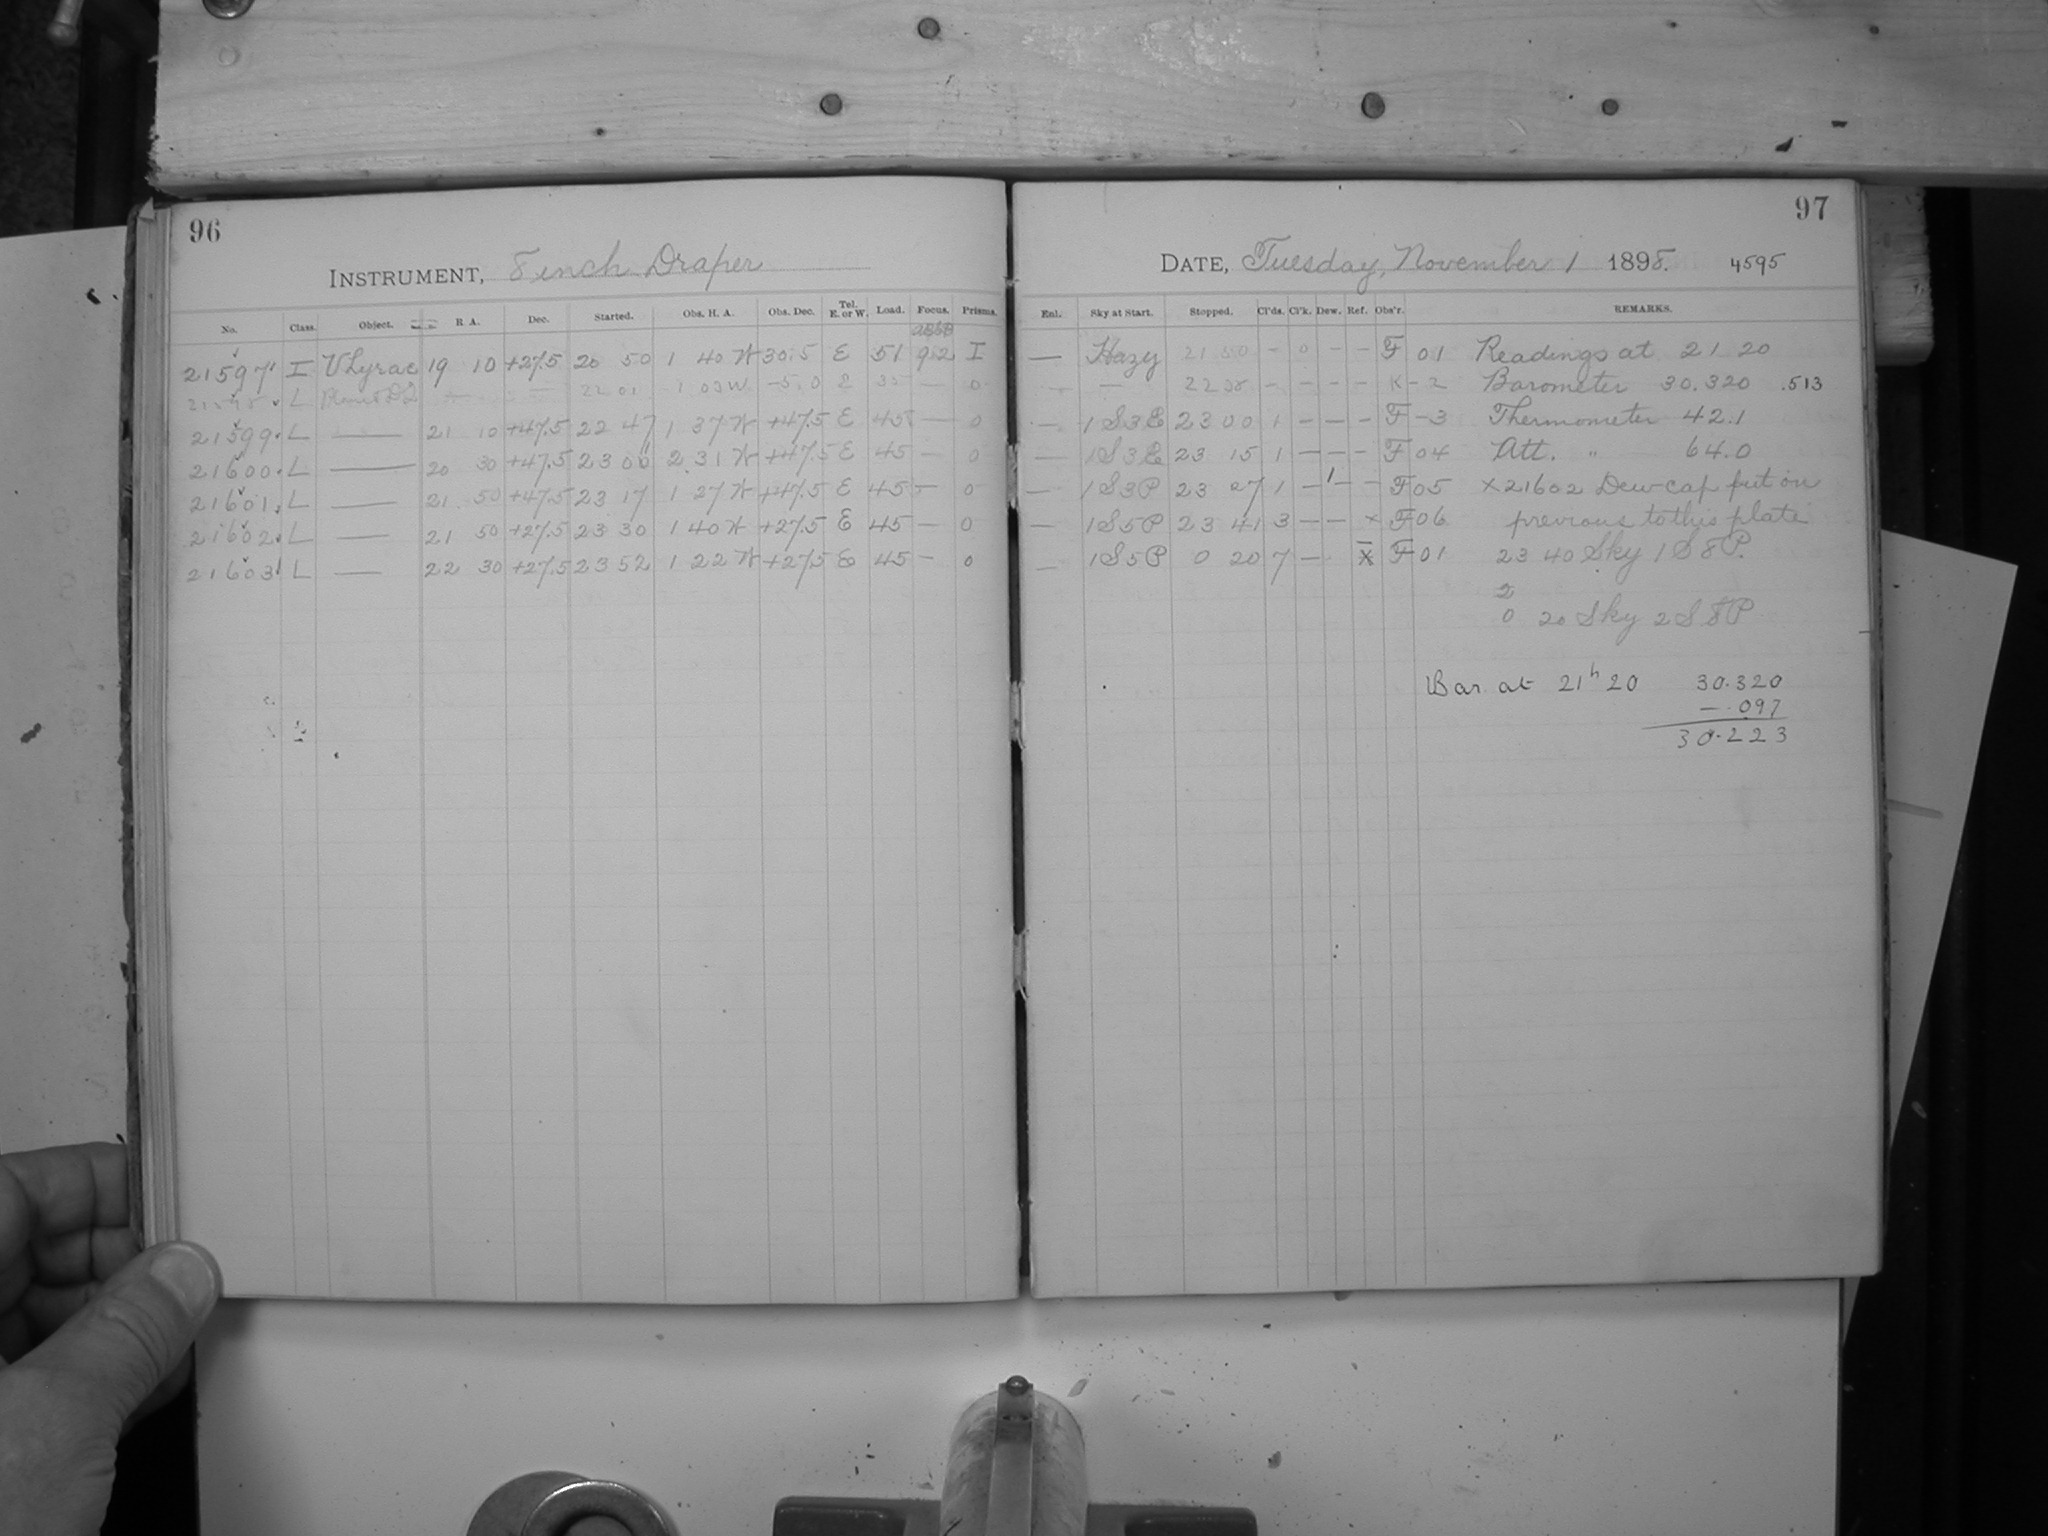 96
INSTRUMENT, 8 inch Draper
No. Class. Object. R A. Dec. Started. Obs. H. A. Obs. Dec. Tel. E. or W. Load. Focus. Prisms.
21597 I V Lyrae 19 10 +27.5 20 50 1 40 W 30.5 E 51 9.2 I
L 22 01 1 03 W -5.0 E 35 — 0
21599 L — 21 10 +47.5 22 47 1 37 W +47.5 E 45 — 0
21600 L — 20 30 +47.5 23 00 2 31 W +47.5 E 45 — 0
21601 L — 21 50 +47.5 23 17 1 27 W +47.5 E 45 — 0
21602 L — 21 50 +27.5 23 30 1 40 W +27.5 E 45 — 0
21603 L — 22 30 +27.5 23 52 1 22 W +27.5 E 45 — 0
97
DATE, Tuesday, November 1 1898. 4595
Enl. Sky at Start. Stopped. Cl'ds. Cl'k. Dew. Ref. Obs'r. REMARKS.
— Hazy 21 50 - 0 - - F 01 Readings at 21 20
— — - - - - K - 2 Barometer 30.320 .513
— 1S3E 23 00 1 - - - F - 3 Thermometer 42.1
— 1S3E 23 15 1 - - - F 04 Att. " 64.0
— 1S3P 23 27 1 - 1 - - F 05 x 21602 Dewcap put on
— 1S5P 23 41 3 - - x F 06 previous to this plate
— 1S5P 0 20 7 - x F 01 23 40 Sky 1S8P.
2
0 20 Sky 2S8P
Bar. at 21h 20 30.320
- .097
30.223